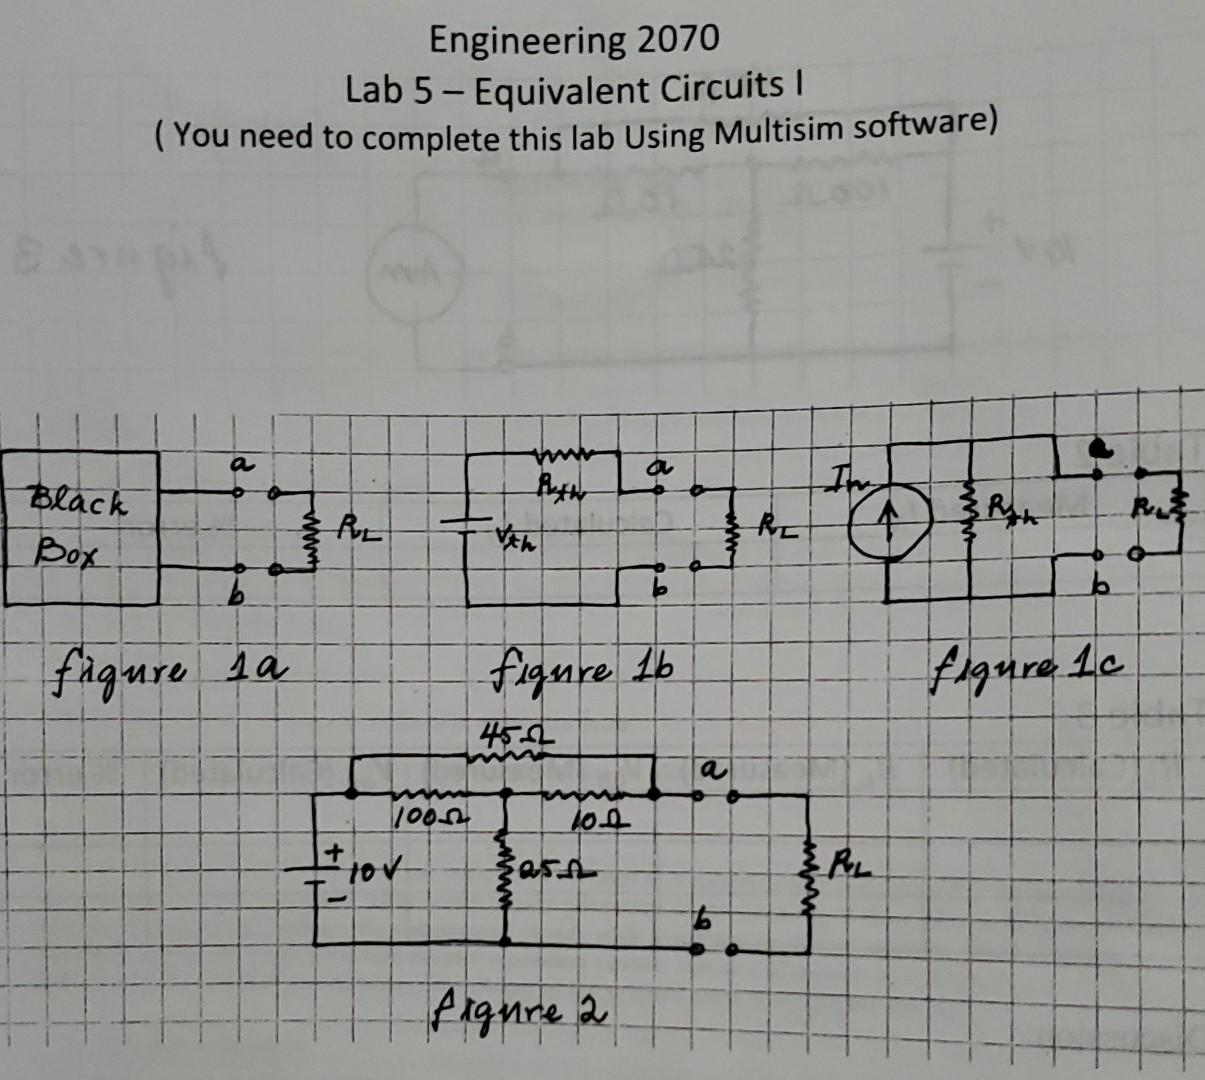 Engineering 2070
Lab 5 – Equivalent Circuits I
( You need to complete this lab Using Multisim software)
Black
Box
a
b
RL
figure 1a
Rth
Vth
a
b
RL
figure 1b
In
Rth
a
b
RL
figure 1c
45Ω
100Ω
10Ω
a
+
10V
-
25Ω
RL
b
figure 2